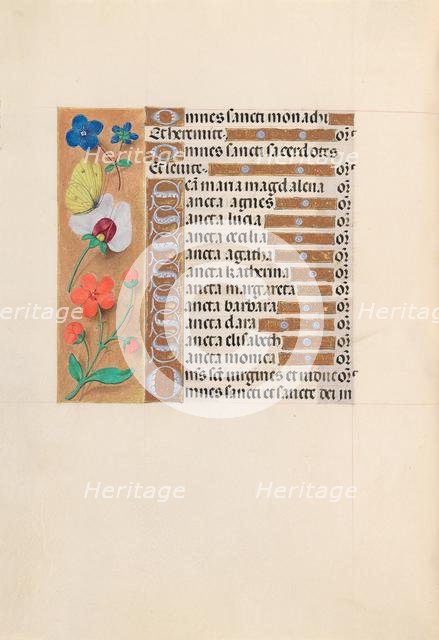 Omnes sancti monachi
Et heremite. or̄
Omnes sancti sacerdotes
Et leuite. or̄
Scā maria magdalena or̄
Sancta agnes or̄
Sancta lucia or̄
Sancta cecilia or̄
Sancta agatha or̄
Sancta katherina or̄
Sancta margareta or̄
Sancta barbara or̄
Sancta clara or̄
Sancta elisabeth or̄
Sancta monica or̄
Om̄s scē virgines et vidue or̄
Omnes sancti et sancte dei in
Heritage
Heritage
Heritage
Heritage
Heritage
Heritage